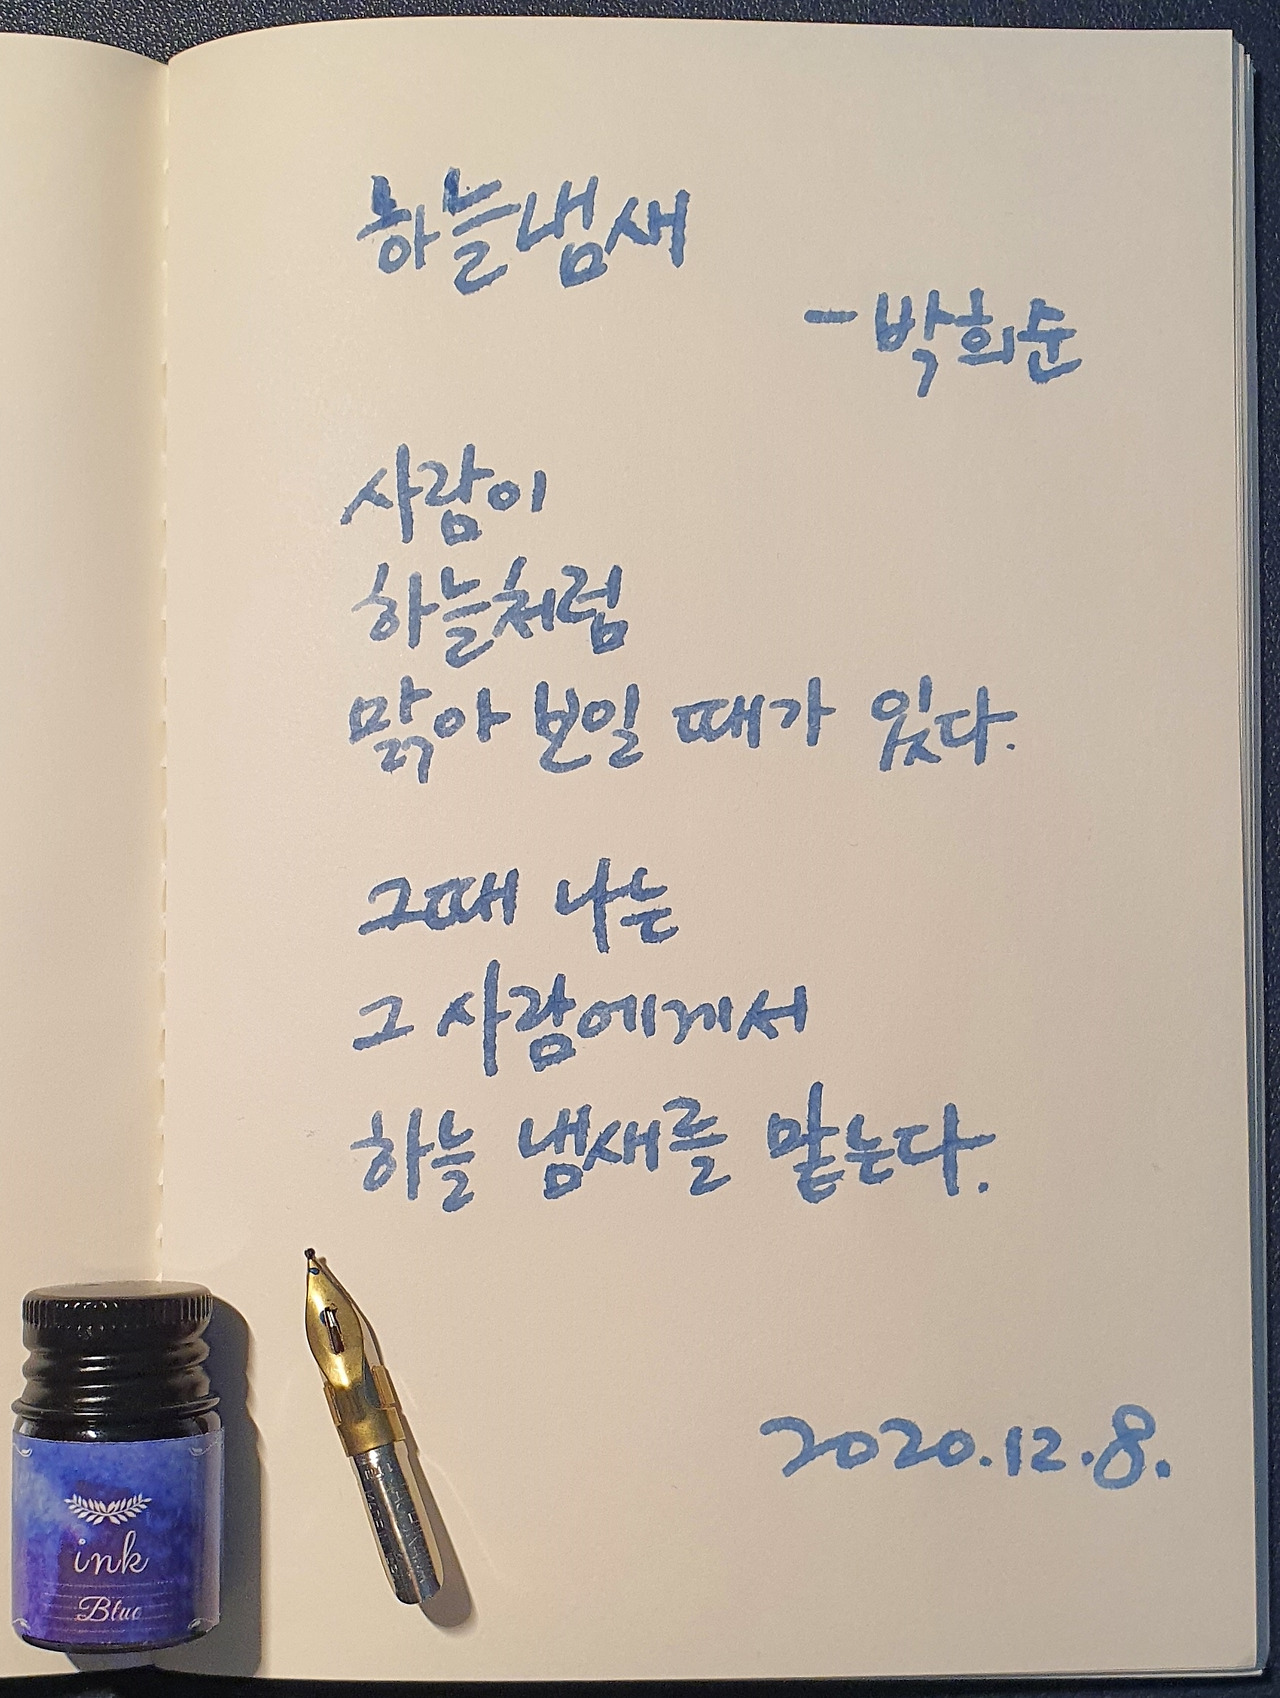 하늘냄새
- 박희순
사람이
하늘처럼
맑아 보일 때가 있다.
그때 나는
그 사람에게서
하늘 냄새를 맡는다.
2020.12.8.
ink
Blue